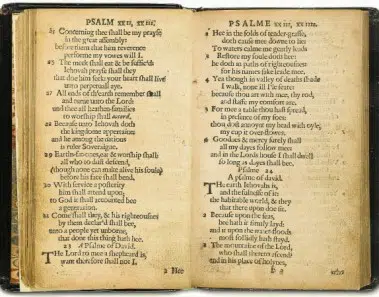 PSALM XXII, XXIII,
25 Concerning thee shall be my prayse
in the great assembly:
before them that him reverence
performe my vowes will I.
26 The meek shall eat & be suffic'd:
Iehovah prayse shall they
that doe him seek: your heart shall live
unto perpetuall aye.
27 All ends of th'earth remember shall
and turne unto the Lord:
and thee all heathen-families
to worship shall accord.
28 Because unto Iehovah doth
the kingdome appertaine:
and he among the nations
is ruler Soveraigne.
29 Earths-fat-ones, eat & worship shall:
all who to dust descend,
(though none can make alive his soule)
before his face shall bend.
30 With service a posterity
him shall attend upon;
to God it shall accounted bee
a generation.
31 Come shall they, & his righteousnes
by them declar'd shall bee,
unto a people yet unborne,
that done this thing hath hee.
23 A Psalme of David.
The Lord to mee a shepheard is,
want therefore shall not I.
2 Hee
PSALME XXIII, XXIIII.
2 Hee in the folds of tender-grasse,
doth cause mee downe to lie:
To waters calme me gently leads
3 Restore my soule doth hee:
he doth in paths of righteousnes:
for his names sake leade mee.
4 Yea though in valley of deaths shade
I walk, none ill I'le feare:
because thou art with mee, thy rod,
and staffe my comfort are.
5 For mee a table thou hast spread,
in presence of my foes:
thou dost annoynt my head with oyle,
my cup it over-flowes.
6 Goodnes & mercy surely shall
all my dayes follow mee:
and in the Lords house I shall dwell
so long as dayes shall bee.
Psalme 24
A psalme of david.
The earth Iehovah's is,
and the fulnesse of it:
the habitable world, & they
that there upon doe sit.
2 Because upon the seas,
hee hath it firmly layd:
and it upon the water-floods
most sollidly hath stayd.
3 The mountaine of the Lord,
who shall thereto ascend?
and in his place of holynes,